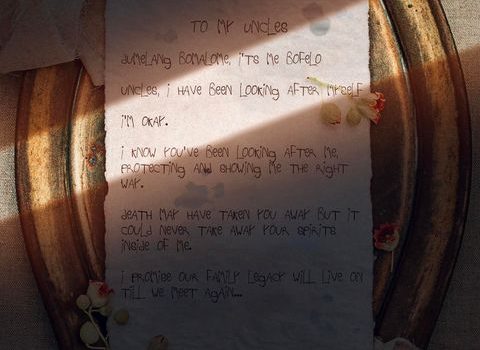 TO MY UNCLES
DUMELANG BOMALOME, IT'S ME BOFELO
UNCLES, I HAVE BEEN LOOKING AFTER MYSELF
I'M OKAY.
I KNOW YOU'VE BEEN LOOKING AFTER ME,
PROTECTING AND SHOWING ME THE RIGHT
WAY.
DEATH MAY HAVE TAKEN YOU AWAY BUT IT
COULD NEVER TAKE AWAY YOUR SPIRITS
INSIDE OF ME.
I PROMISE OUR FAMILY LEGACY WILL LIVE ON
TILL WE MEET AGAIN...